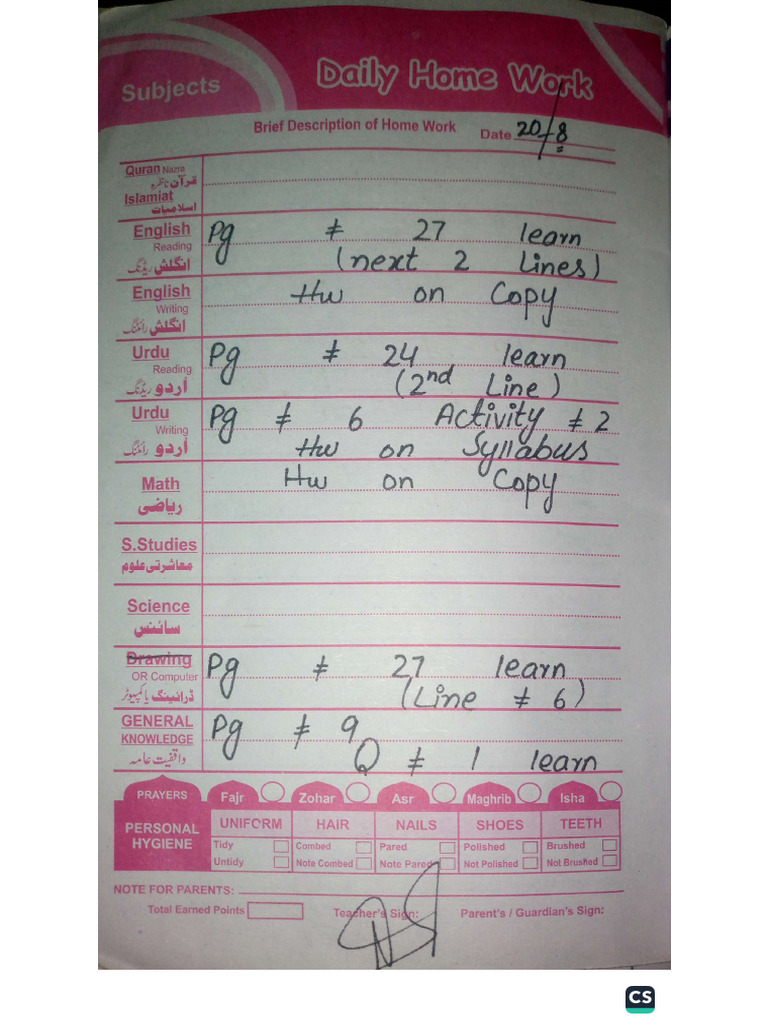 Subjects
Daily Home Work
Brief Description of Home Work
Date 20/8
Quran Nazra
قرآن ناظرہ
Islamiat
اسلامیات
English
Reading
انگلش ریڈنگ
Pg # 27 learn
(next 2 Lines)
English
Writing
انگلش رائٹنگ
Hw on Copy
Urdu
Reading
اُردو ریڈنگ
Pg # 24 learn
(2nd Line)
Urdu
Writing
اُردو رائٹنگ
Pg # 6 Activity # 2
Hw on Syllabus
Math
ریاضی
Hw on Copy
S.Studies
معاشرتی علوم
Science
سائنس
Drawing
OR Computer
ڈرائینگ یا کمپیوٹر
Pg # 27 learn
(Line # 6)
GENERAL
KNOWLEDGE
واقفیت عامہ
Pg # 9
Q # 1 learn
PRAYERS Fajr Zohar Asr Maghrib Isha
PERSONAL HYGIENE
UNIFORM HAIR NAILS SHOES TEETH
Tidy Combed Pared Polished Brushed
Untidy Note Combed Note Pared Not Polished Not Brushed
NOTE FOR PARENTS:
Total Earned Points Teacher's Sign: Parent's / Guardian's Sign:
CS